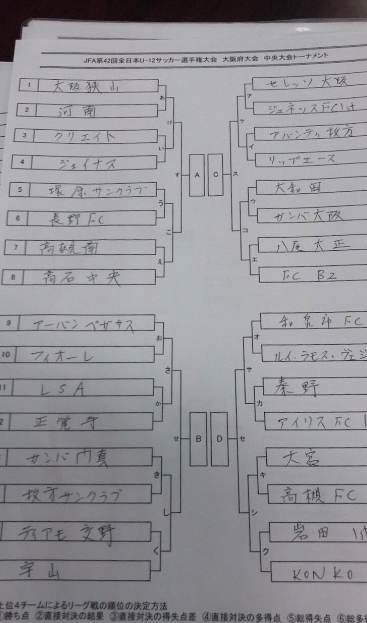 JFA第42回全日本U-12サッカー選手権大会 大阪府大会 中央大会トーナメント
1 大阪狭山
2 河南
3 クリエイト
4 ジェイナス
5 塚原サンクラブ
6 長野FC
7 高槻南
8 高石中央
あ
い
う
え
け
こ
す
A
C
セレッソ大阪
ジェネッスFC
アバンティ枚方
リップエース
大和田
サンバ大阪
八尾大正
FC B2
ア
イ
ウ
エ
ケ
コ
ス
9 アーバンペガサス
10 フィオーレ
11 LSA
正覚寺
サンバ門真
枚方サンクラブ
ディアモ交野
宇山
お
か
き
く
さ
し
せ
B
D
和泉市FC
ルイ.ラモス.ヴェジ
秦野
アイリスFC
大宮
高槻FC
岩田
KONKO
オ
カ
キ
ク
サ
シ
セ
上位4チームによるリーグ戦の順位の決定方法
①勝ち点 ②直接対決の結果 ③直接対決の得失点差 ④直接対決の多得点 ⑤総得失点 ⑥総多